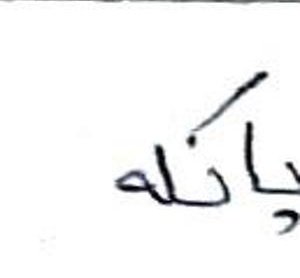 پاکله